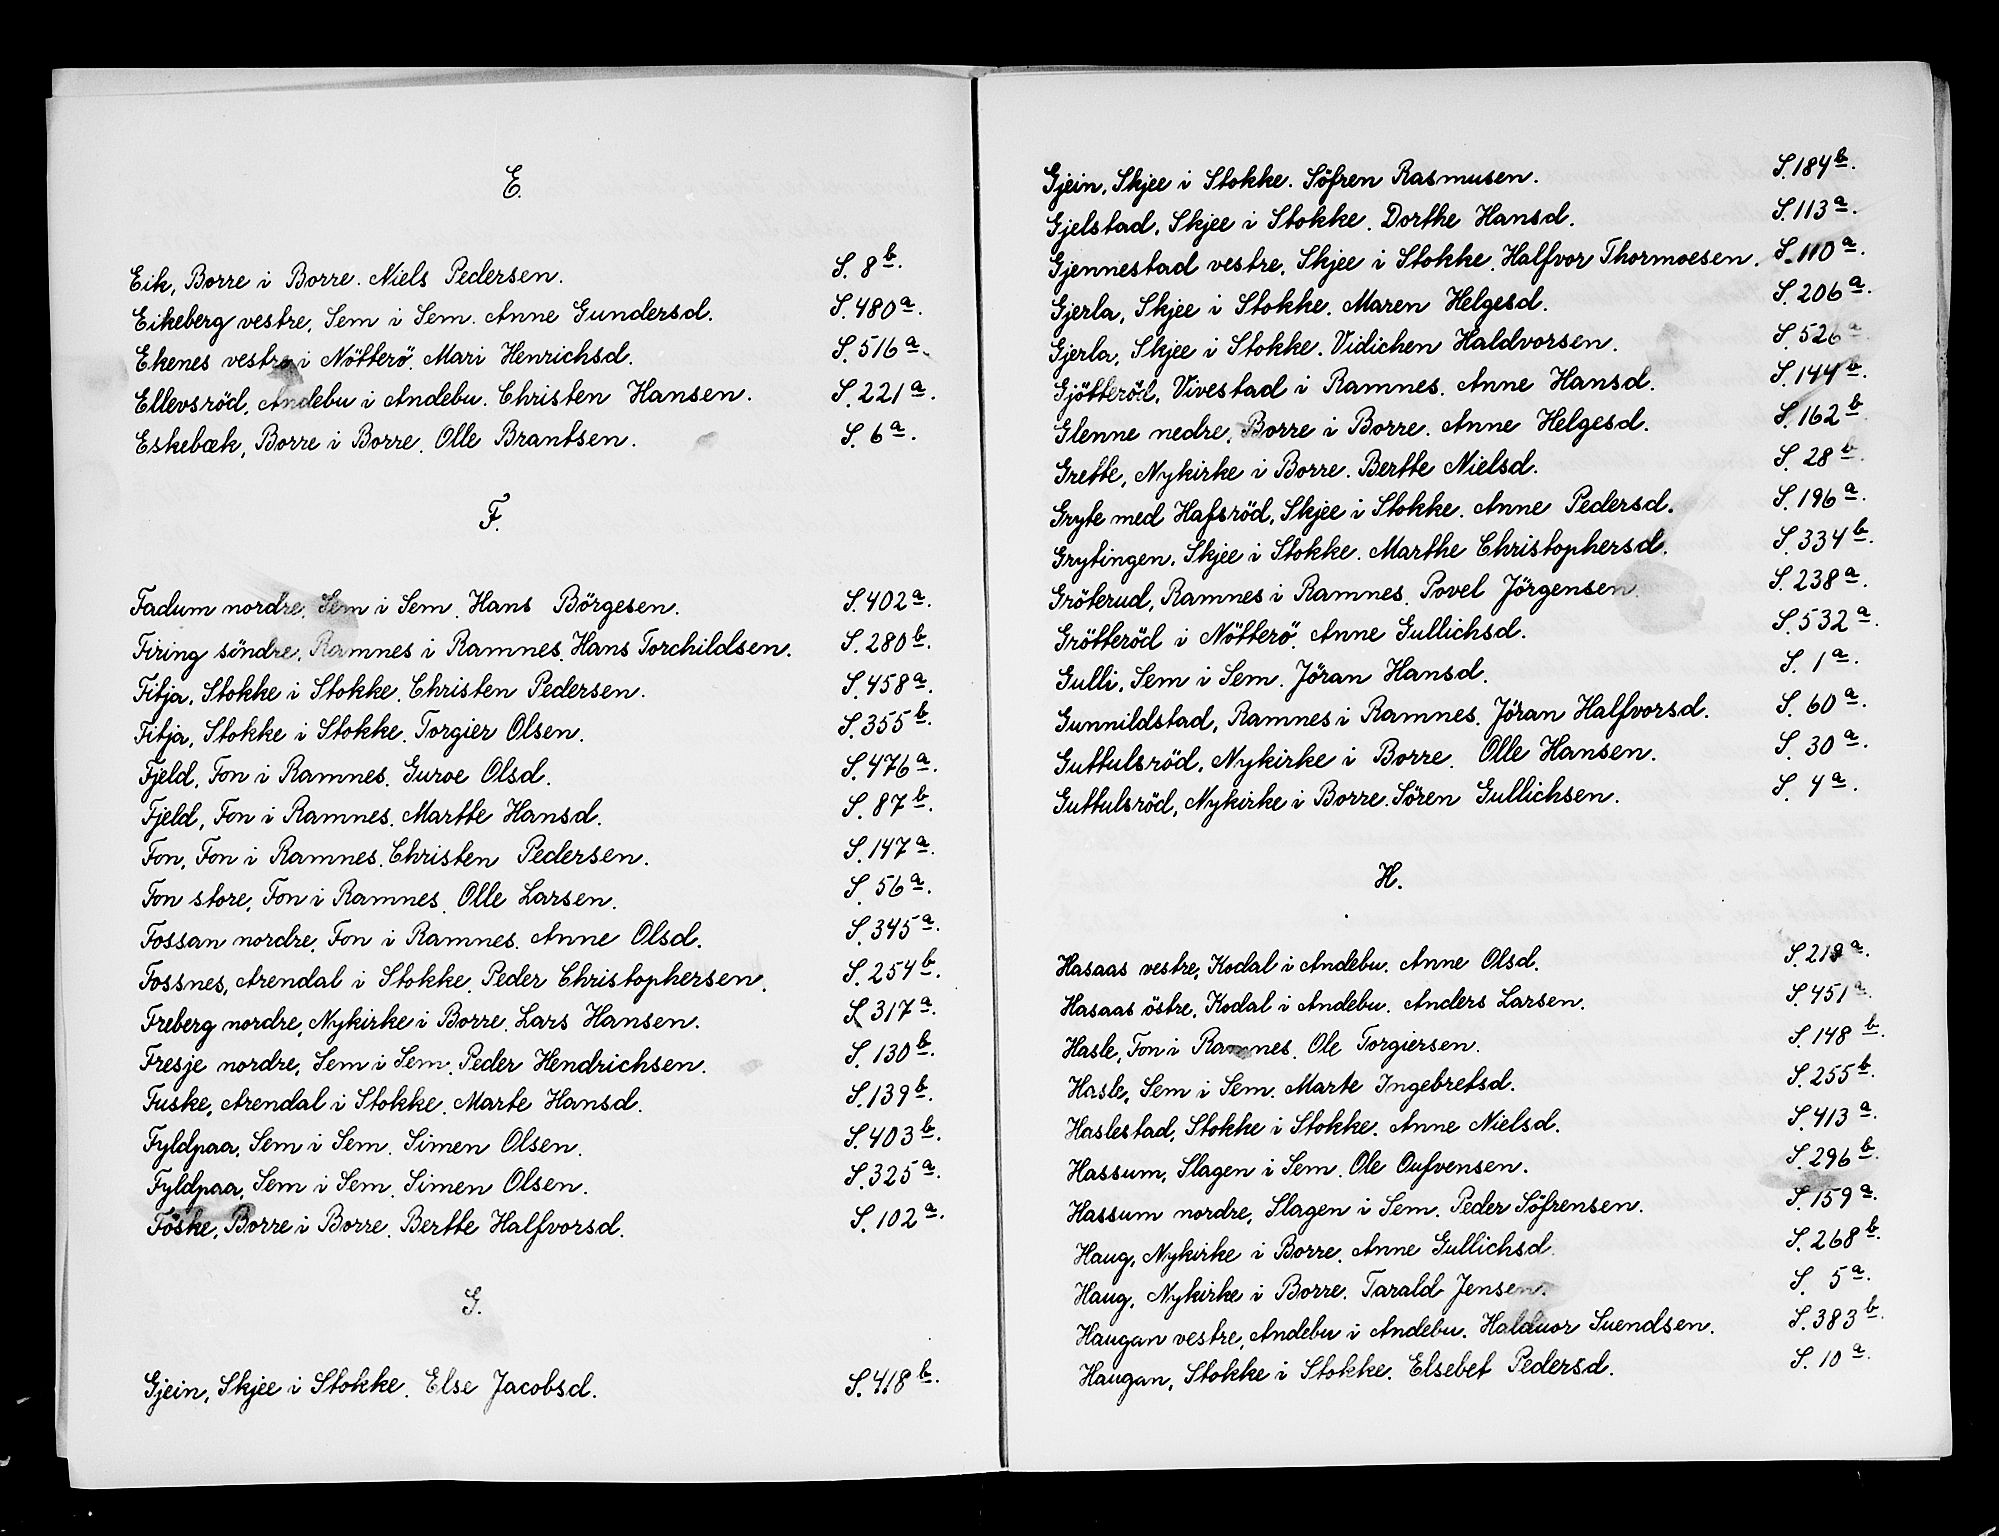 E.
Eik, Borre i Borre. Niels Pedersen. S. 8b.
Eikeberg vestre, Sem i Sem. Anne Gundersd. S. 480a.
Ekenes vestre i Nötterö. Mari Henrichsd. S. 516a.
Ellevsröd, Andebu i Andebu. Christen Hansen. S. 221a.
Eskebæk, Borre i Borre. Olle Brantsen. S. 6a.
F.
Fadum nordre, Sem i Sem. Hans Börgesen. S. 402a.
Firing söndre, Ramnes i Ramnes. Hans Torchildsen. S. 280b.
Fitja, Stokke i Stokke. Christen Pedersen. S. 458a.
Fitja, Stokke i Stokke. Torgier Olsen. S. 355b.
Fjeld, Fon i Ramnes. Guroe Olsd. S. 476a.
Fjeld, Fon i Ramnes. Martte Hansd. S. 87b.
Fon, Fon i Ramnes. Christen Pedersen. S. 147a.
Fon store, Fon i Ramnes. Olle Larsen. S. 56a.
Fossan nordre, Fon i Ramnes. Anne Olsd. S. 345a.
Fossnes, Arendal i Stokke. Peder Christophersen. S. 254b.
Freberg nordre, Nykirke i Borre. Lars Hansen. S. 317a.
Fresje nordre, Sem i Sem. Peder Hendrichsen. S. 130b.
Fuske, Arendal i Stokke. Marte Hansd. S. 139b.
Fyldpaa, Sem i Sem. Simen Olsen. S. 403b.
Fyldpaa, Sem i Sem. Simen Olsen. S. 325a.
Föske, Borre i Borre. Bertte Halfvorsd. S. 102a.
G.
Gjein, Skjee i Stokke. Else Jacobsd. S. 418b.
Gjein, Skjee i Stokke. Söfren Rasmusen. S. 184b.
Gjelstad, Skjee i Stokke. Dorthe Hansd. S. 113a.
Gjennestad vestre, Skjee i Stokke. Halfvor Thormoesen. S. 110a.
Gjerla, Skjee i Stokke. Maren Helgesd. S. 206a.
Gjerla, Skjee i Stokke. Vidichen Haldvorsen. S. 526a.
Gjötteröd, Vivestad i Ramnes. Anne Hansd. S. 144b.
Glenne nedre, Borre i Borre. Anne Helgesd. S. 162b.
Grette, Nykirke i Borre. Bertte Nielsd. S. 28b.
Gryte med Hafsröd, Skjee i Stokke. Anne Pedersd. S. 196a.
Grytingen, Skjee i Stokke. Marthe Christophersd. S. 334b.
Gröterud, Ramnes i Ramnes. Povel Jörgensen. S. 238a.
Grötteröd i Nötterö. Anne Gullichsd. S. 532a.
Gulli, Sem i Sem. Jöran Hansd. S. 1a.
Gunnildstad, Ramnes i Ramnes. Jöran Halfvorsd. S. 60a.
Guttulsröd, Nykirke i Borre. Olle Hansen. S. 30a.
Guttulsröd, Nykirke i Borre. Sören Gullichsen. S. 4a.
H.
Hasaas vestre, Kodal i Andebu. Anne Olsd. S. 218a.
Hasaas östre, Kodal i Andebu. Anders Larsen. S. 451a.
Hasle, Fon i Ramnes. Ole Torgiersen. S. 148b.
Hasle, Sem i Sem. Marte Ingebretsd. S. 255b.
Haslestad, Stokke i Stokke. Anne Nielsd. S. 413a.
Hassum, Slagen i Sem. Ole Oufvensen. S. 296b.
Hassum nordre, Slagen i Sem. Peder Söfrensen. S. 159a.
Haug, Nykirke i Borre. Anne Gullichsd. S. 268b.
Haug, Nykirke i Borre. Tarald Jensen. S. 5a.
Haugan vestre, Andebu i Andebu. Halduor Suendsen. S. 383b.
Haugan, Stokke i Stokke. Elsebet Pedersd. S. 10a.